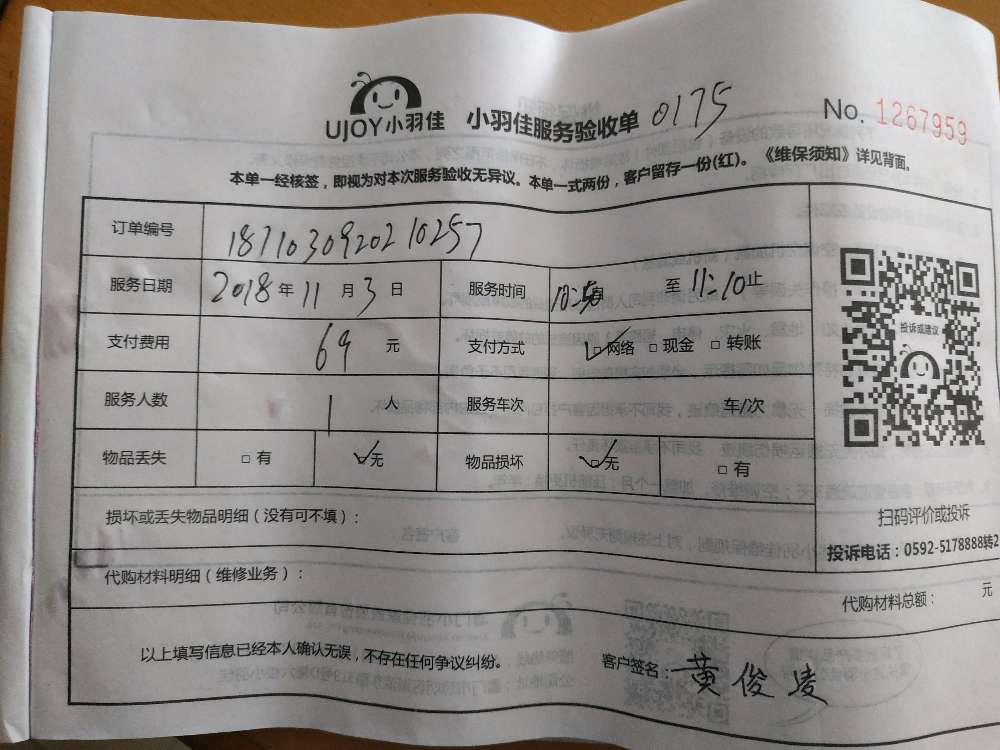 UJOY小羽佳 小羽佳服务验收单 0175 No. 1267959
本单一经核签，即视为对本次服务验收无异议。本单一式两份，客户留存一份(红)。《维保须知》详见背面。
订单编号 1871030920210257
服务日期 2018年11月3日 服务时间 10:50 至11:10止
支付费用 69 元 支付方式 ☑网络 □现金 □转账
服务人数 1 人 服务车次 车/次
物品丢失 □有 ☑无 物品损坏 ☑无 □有
投诉或建议
损坏或丢失物品明细（没有可不填）：
扫码评价或投诉
投诉电话：0592-5178888转2
代购材料明细（维修业务）：
代购材料总额： 元
以上填写信息已经本人确认无误，不存在任何争议纠纷。 客户签名：黄俊凌